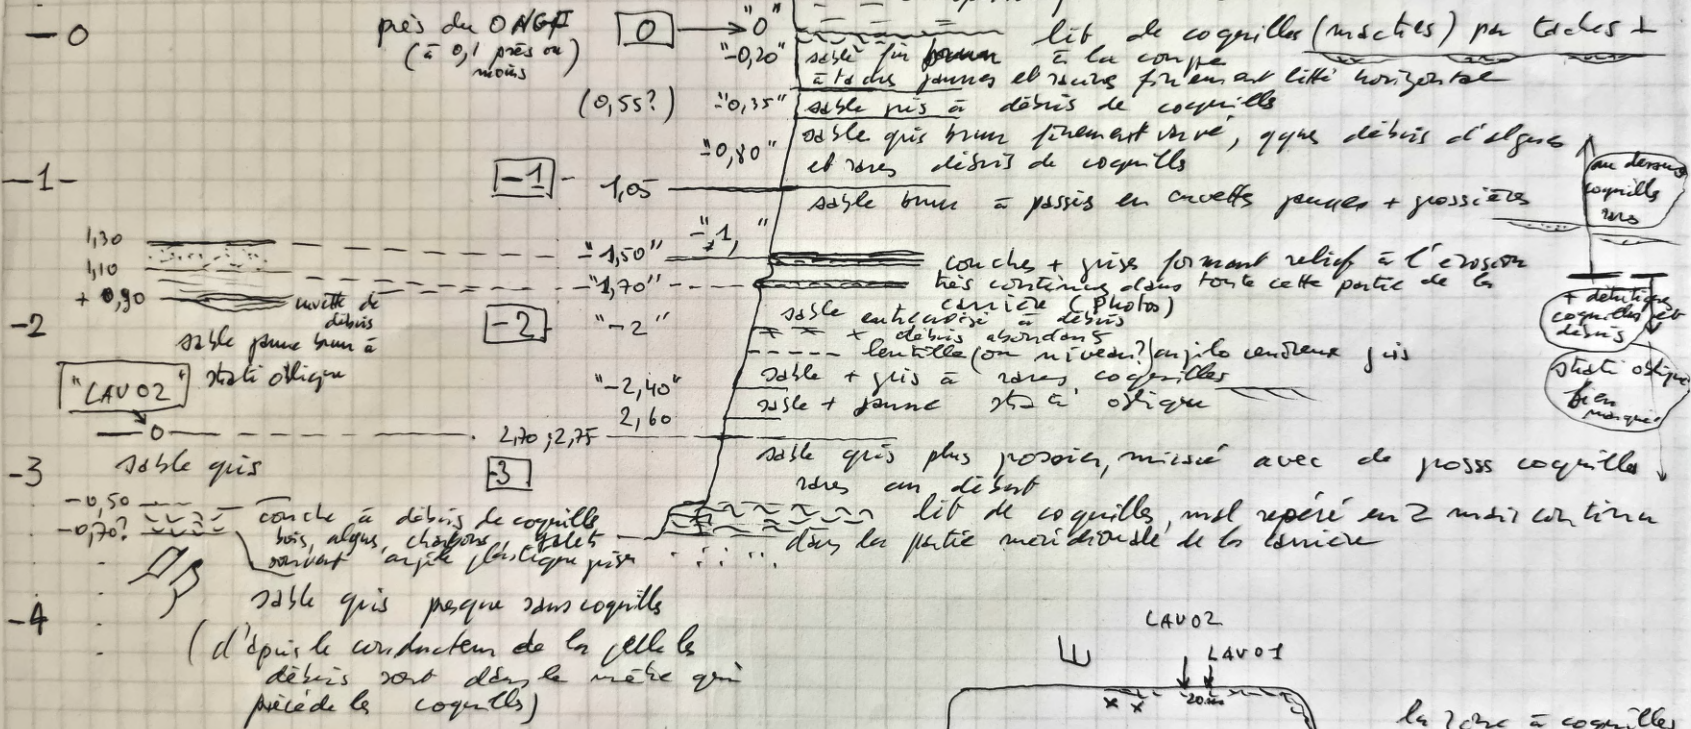 — 0
près du 0 NGF
(à 0,1 près ou moins)
0 → "0"
lit de coquilles (mactres) par taches ±
"-0,20" sable fin à la coupe
à taches jaunes et finement lité horizontal
(0,55?) "-0,35" sable gris à débris de coquilles
"-0,80" sable gris brun finement varvé, qques débris d'algues
et rares débris de coquilles
-1-
-1 - 1,05
sable brun à passées en cuvettes jaunes + grossières
au dessus
coquilles
rares
"-1, "
1,30
1,10
+ 0,90
cuvette de
débris
"-1,50" couches + grises formant relief à l'érosion
"-1,70" très continues dans toute cette partie de la
carrière (photos)
-2
-2 "-2"
sable entrecroisé à débris
+ débris abondants
lentille (ou niveau?) argilo cendreux gris
"-2,40" sable + gris à rares coquilles
2,60 sable + jaune strati oblique
+ détritiques
coquilles et
débris
strati oblique
bien
marquée
sable jaune brun à
strati oblique
"LAV02"
— 0 —
2,70 ; 2,75
sable gris
-3
-3
sable gris plus grossier, mêlé avec de grosses coquilles
rares au début
-0,50
-0,70?
couche à débris de coquilles
bois, algues, charbons, galets
souvent argile plastique grise
lit de coquilles, mal repéré en 2 mais continu
dans la partie méridionale de la carrière
-4
sable gris presque sans coquilles
(d'après le conducteur de la pelle les
débris sont dans le mètre qui
précède les coquilles)
LAV02
E
LAV01
20 m
la zone à coquilles